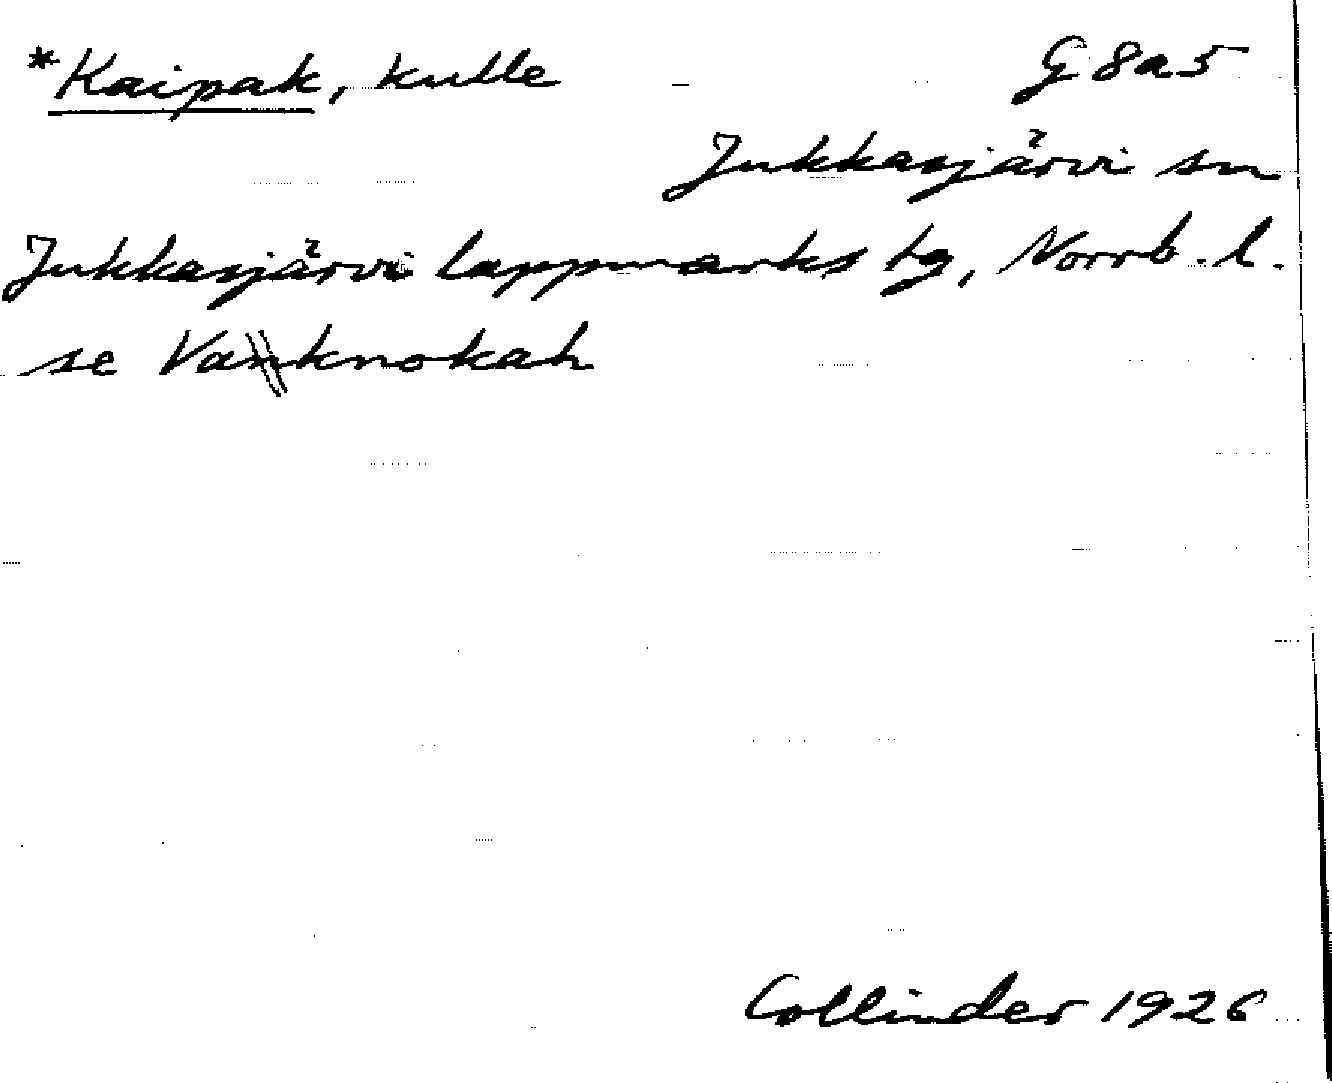 *Kaipak, kulle G 8a5
Jukkasjärvi sn
Jukkasjärvi lappmarks tg, Norrb. l.
se Vanknokah
Collinder 1926